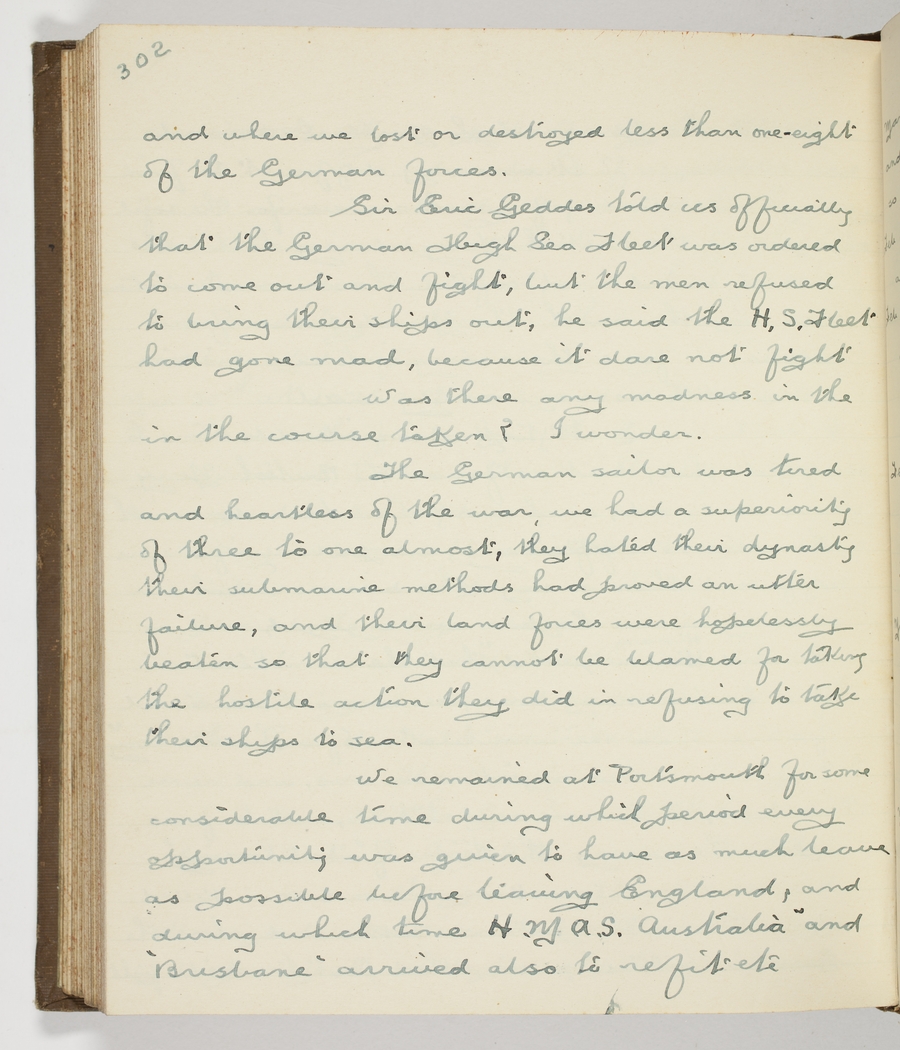 302
and where we lost or destroyed less than one-eight
of the German forces.
Sir Eric Geddes told us officially
that the German High Sea Fleet was ordered
to come out and fight, but the men refused
to bring their ships out, he said the H.S. Fleet
had gone mad, because it dare not fight
Was there any madness in the
in the course taken? I wonder.
The German sailor was tired
and heartless of the war, we had a superiority
of three to one almost, they hated their dynasty
their submarine methods had proved an utter
failure, and their land forces were hopelessly
beaten so that they cannot be blamed for taking
the hostile action they did in refusing to take
their ships to sea.
We remained at Portsmouth for some
considerable time during which period every
opportunity was given to have as much leave
as possible before leaving England, and
during which time H.M.A.S. Australia" and
"Brisbane" arrived also to refit etc